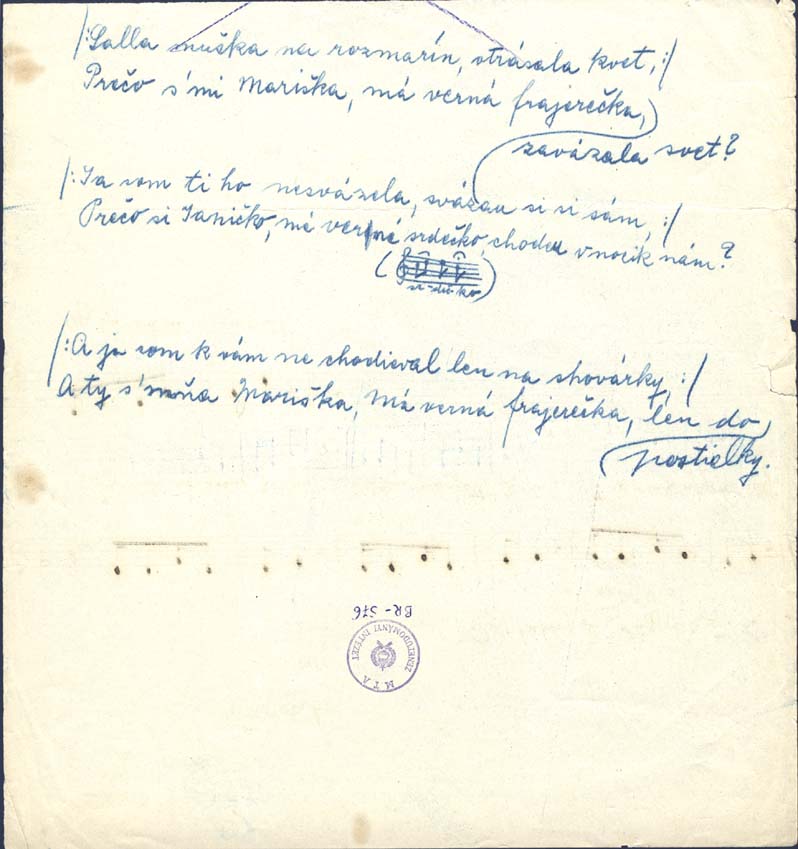 /:Salla muška na rozmarín, otrásala kvet, :/
Prečo s'mi Mariška, má verná frajerečka,
zavázala svet?
/:Ja som ti ho nesvázala, svázau si si sám, :/
Prečo si Janičko, má verné srdečko, chodeu v noci k nám?
(sr-deč-ko)
/:A ja som k vám ne chodieval len na shovárky, :/
A ty s'mňa Mariška, Má verná frajerečka, len do
postielky.
BR - 576
MTA
ZENETUDOMÁNYI INTÉZET